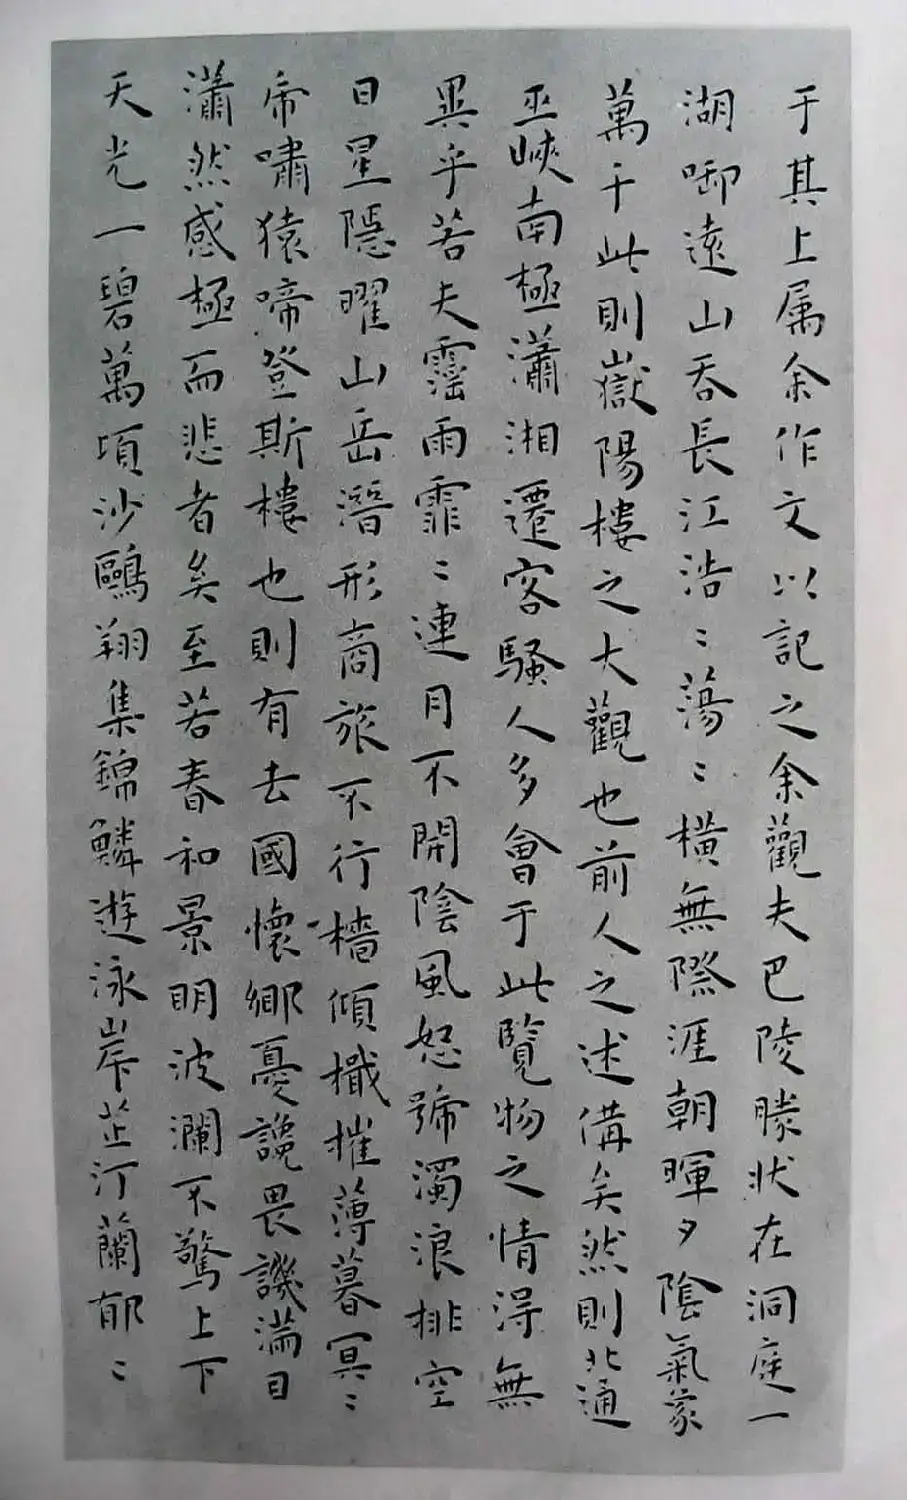 于其上属余作文以記之余觀夫巴陵勝状在洞庭一
湖啣遠山吞長江浩〻蕩〻橫無際涯朝暉夕陰氣象
萬千此則嶽陽樓之大觀也前人之述備矣然則北通
巫峽南極瀟湘遷客騷人多會于此覽物之情淂無
異乎若夫霪雨霏〻連月不開陰風怒號濁浪排空
日星隱曜山岳潛形商旅不行檣傾檝摧薄暮冥〻
帍嘯猿啼登斯樓也則有去國懷鄉憂讒畏譏滿目
瀟然感極而悲者矣至若春和景明波瀾不驚上下
天光一碧萬頃沙鷗翔集錦鱗遊泳岸芷汀蘭郁〻